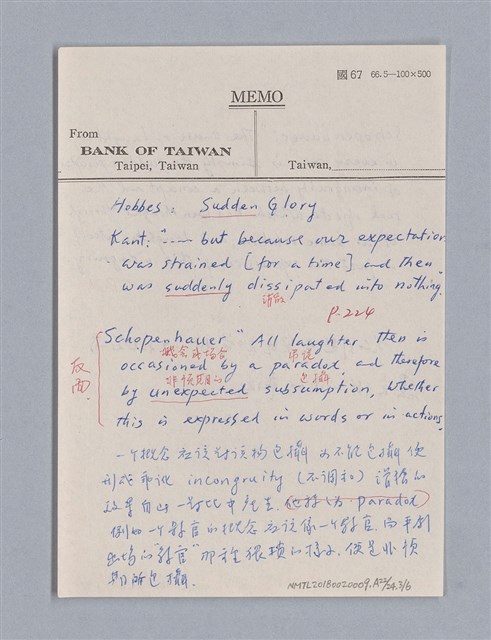 國67 66.5—100×500
MEMO
From
BANK OF TAIWAN
Taipei, Taiwan
Taiwan,
Hobbes: Sudden Glory
Kant: "---- but because our expectation
was strained [for a time] and then
was suddenly dissipated into nothing.
消散
P. 224
Schopenhauer " All laughter then is
概念與場合
occasioned by a paradox and therefore
非預期的 包攝
by unexpected subsumption, whether
this is expressed in words or in actions.
反面
一个概念应该對该物包攝 而不能包攝 便
形成 incongruity (不調和) 滑稽的
效果自此一對比中產生. 他称为 paradox
例如一个 官的概念应该像一个 官,而平劇
出場的 " 官" 那种猥瑣的樣子, 便是非預
期所包攝.
NMTL20180020009.A22/24.3/6